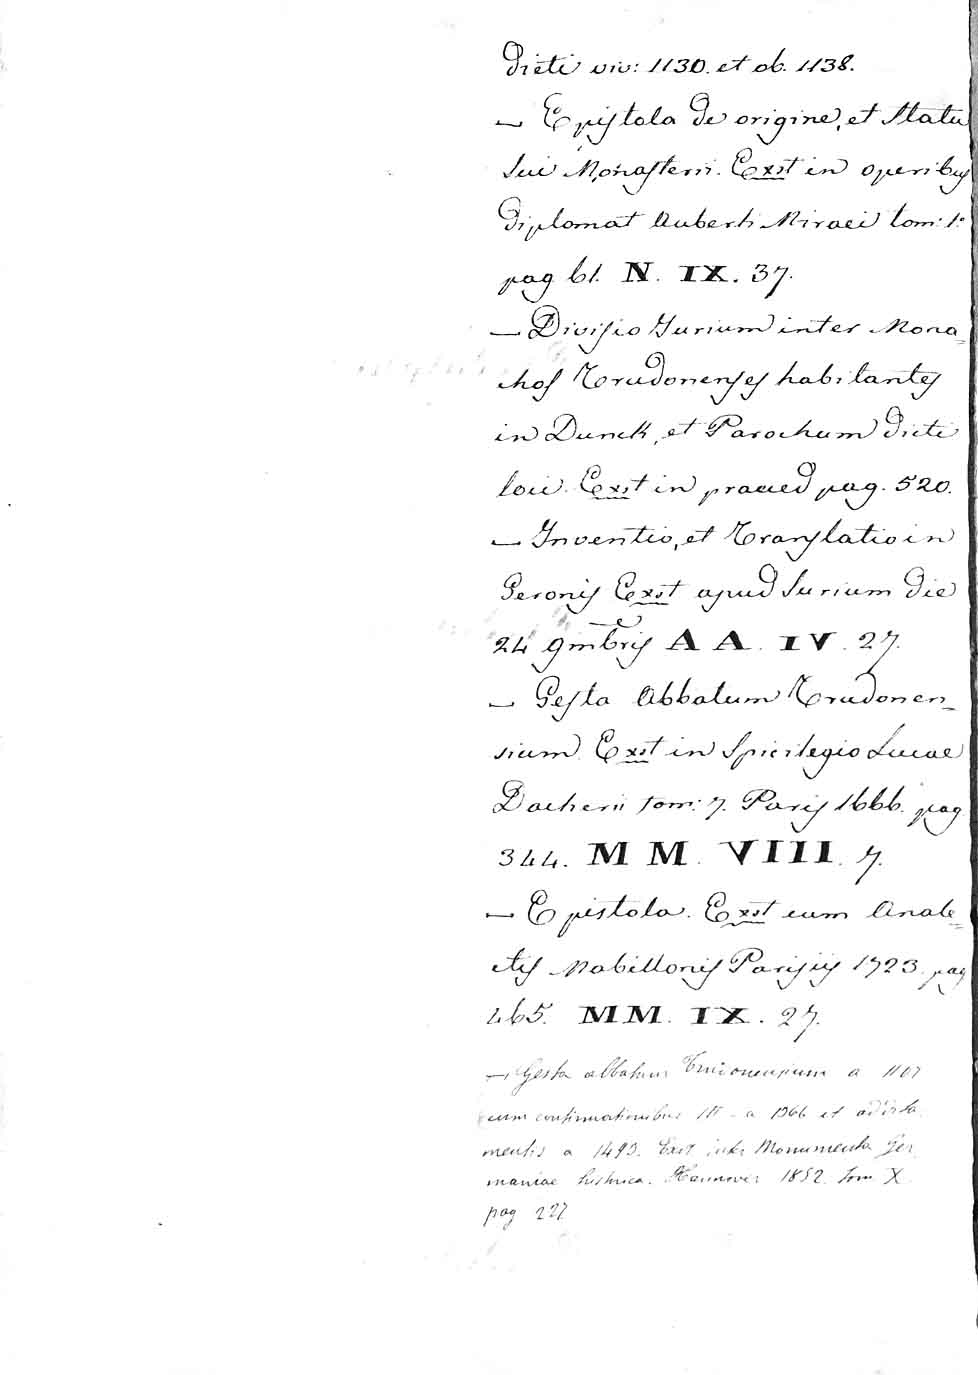 Dicti viv: 1130. et ob. 1138.
— Epistola de origine, et Statu
sui Monasterii. Exst in operibus
Diplomat Auberti Miraei tom: 1:
pag 61. N. IX. 37.
— Divisio Jurium inter Mona=
chos Trudonenses habitantes
in Dunck, et Parochum dicti
loci. Exst in praeced pag. 520.
— Inventio, et Translatio in
Geronis Exst apud Surium die
24 9mbris A A. IV. 27.
— Gesta Abbatum Trudonen=
sium. Exst in Spicilegio Lucae
Dacherii tom: 7. Paris 1666. pag
344. M M. VIII. 7.
— Epistola. Exst cum Anale=
ctis Mabillonis Parisiis 1723. pag
465. MM. IX. 27.
— Gesta abbatum Trudonensium a 1107
cum continuationibus III - a 1366 et addita
mentis a 1493. Exst inter Monumenta Ger
maniae historica. Hannover 1852. tom X.
pag 227